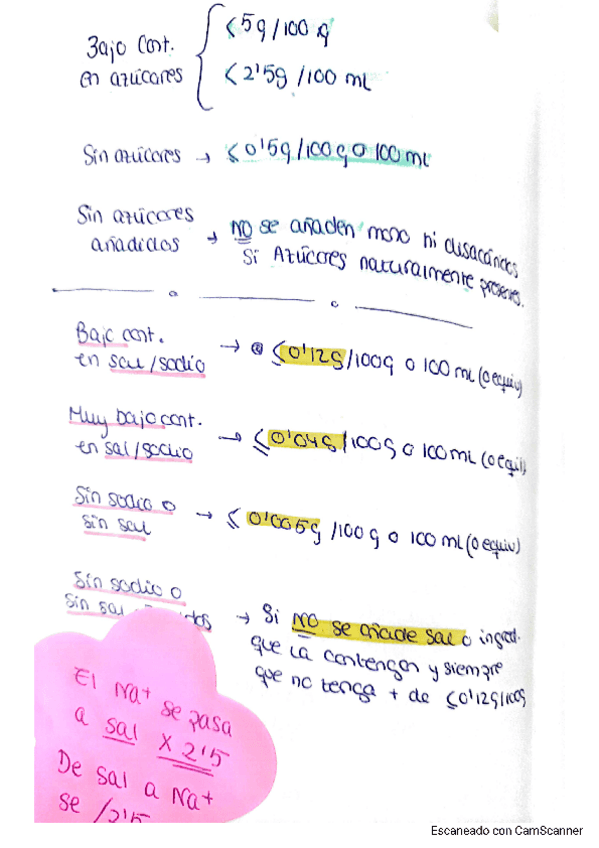 Bajo Cont. en azúcares
<5g/100 g
<2'5g/100 mL
Sin azúcares → ≤0'5g/100g o 100 mL
Sin azúcares
añadidos → NO se añaden mono ni disacáridos
Si Azúcares naturalmente presentes.
Bajo cont.
en sal/sodio → ≤0'12g/100g o 100 mL (o equiv)
Muy bajo cont.
en sal/sodio → ≤0'04g/100g o 100 mL (o equi)
Sin sodio o
sin sal → ≤0'005g/100g o 100 mL (o equiv)
Sin sodio o
Sin sal
→ Si NO se añade sal o ingred.
que la contengan y siempre
que no tenga + de ≤0'12g/100g
El Na+ se pasa
a sal x 2'5
De sal a Na+
se /2'5
Escaneado con CamScanner